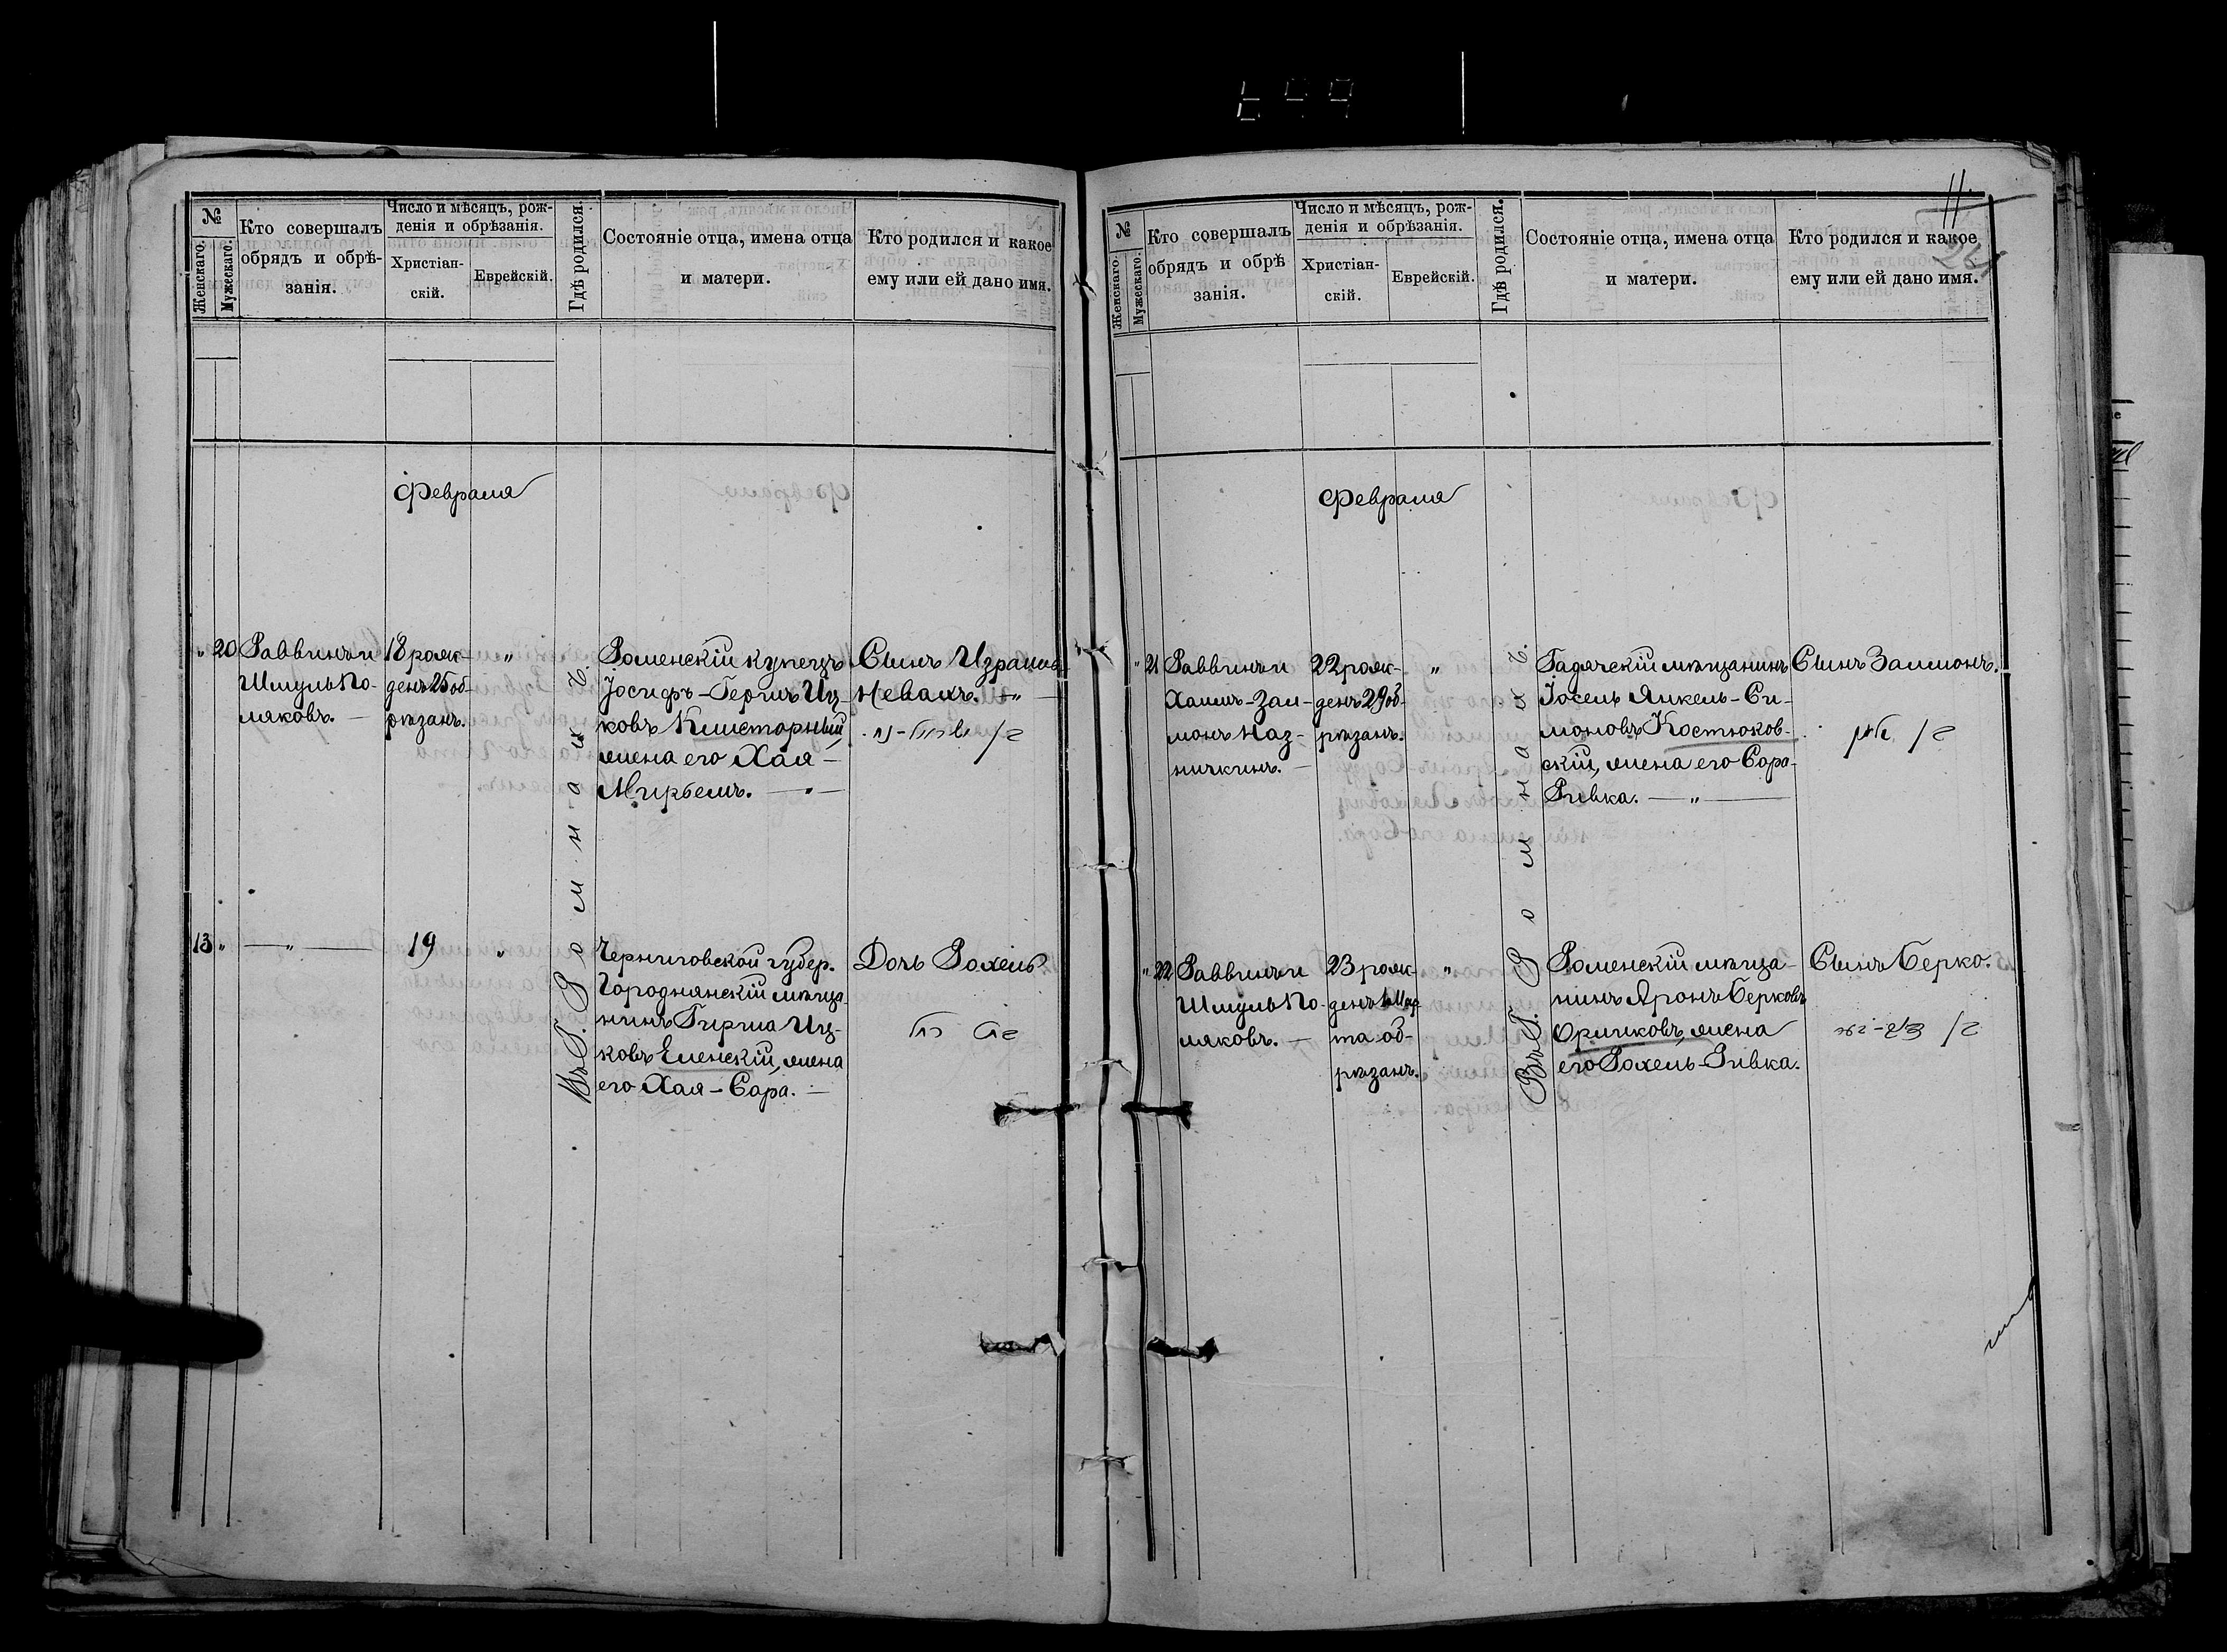 №
Женскаго.
Мужескаго.
Кто совершалъ
обрядъ и обрѣ-
занія.
Число и мѣсяцъ, рож-
денія и обрѣзанія.
Христіан-
скій.
Еврейскій.
Гдѣ родился.
Состояніе отца, имена отца
и матери.
Кто родился и какое
ему или ей дано имя.
Февраля
" 20
Раввинъ и
Шмуль По-
ляковъ. —
18 рож-
денъ 25 об-
рѣзанъ.
"
Роменскій купецъ
Іосифъ-Гершъ Иц-
ковъ Клисторный,
жена его Хая —
Мирьемъ. — " —
Сынъ Израиль
Невахъ. — " —
בן
13 "
— " —
19
"
Черниговской губер.
Городнянскій мѣща-
нинъ Гирша Иц-
ковъ Еленскій, жена
его Хая - Сара. —
Дочь Рохель
בת רחל
Въ Г. Р о м н а х ъ.
№
Женскаго.
Мужескаго.
Кто совершалъ
обрядъ и обрѣ
занія.
Число и мѣсяцъ, рож-
денія и обрѣзанія.
Христіан-
скій.
Еврейскій.
Гдѣ родился.
Состояніе отца, имена отца
и матери.
Кто родился и какое
ему или ей дано имя.
11
Февраля
" 21
Раввинъ и
Хаимъ-Зал-
монъ Каз-
ничкинъ. —
22 рож-
денъ 29 об-
рѣзанъ.
"
Гадячскій мѣщанинъ
Іосель Янкель-Си-
моновъ Костюков-
скій, жена его Сора-
Ривка. — " —
Сынъ Залмонъ.
בן
" 22
Раввинъ и
Шмуль По-
ляковъ. —
23 рож-
денъ 1 Мар-
та об-
рѣзанъ.
"
Роменскій мѣща-
нинъ Аронъ Берковъ
Орликовъ, жена
его Рохель-Ривка.
Сынъ Берко.
בן
Въ Г. Р о м н а х ъ.